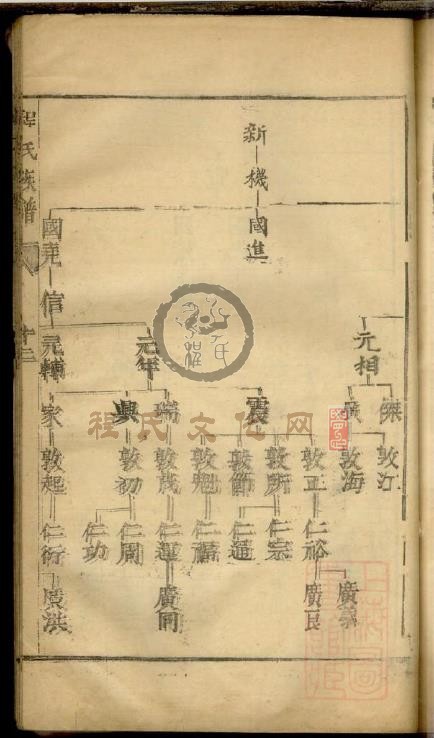 新
機
國進
國堯
信
元相
元年
元轉
傑
震
瑞
興
家
敦江
敦海
敦正
敦所
敦節
敦魁
敦茂
敦初
敦起
仁裕
仁宗
仁道
仁福
仁運
仁周
仁功
仁衍
廣義
廣良
廣同
廣洪
程氏族譜
十二
程氏文化网